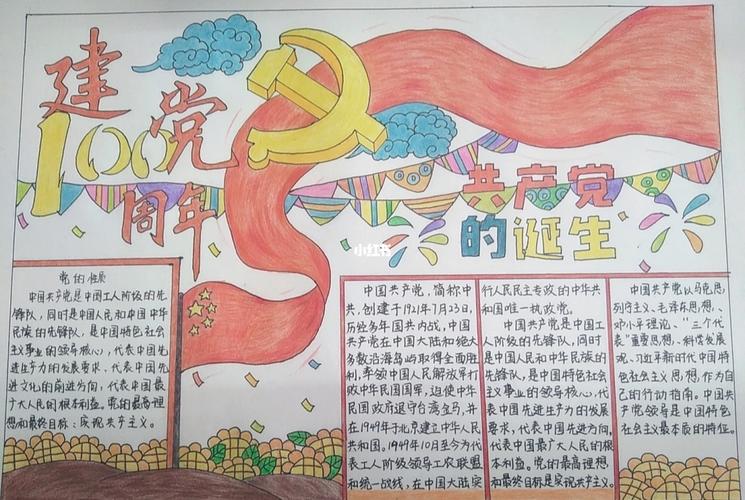 建党
100
周年
共产党
的诞生
小红书
党的性质
中国共产党是中国工人阶级的先
锋队，同时是中国人民和中华
民族的先锋队，是中国特色社会
主义事业的领导核心，代表中国先
进生产力的发展要求，代表中国先
进文化的前进方向，代表中国最
广大人民的根本利益。党的最高理
想和最终目标：实现共产主义。
中国共产党，简称中
共，创建于1921年7月23日，
历经多年国共内战，中国
共产党在中国大陆和绝大
多数沿海岛屿取得全面胜
利，率领中国人民解放军打
败中华民国国军，迫使中华
民国政府退守台湾金马，并
在1949年于北京建立中华人民
共和国。1949年10月至今为代
表工人阶级领导工农联盟
和统一战线，在中国大陆实
行人民民主专政的中华共
和国唯一执政党。
中国共产党是中国工
人阶级的先锋队，同时
是中国人民和中华民族的
先锋队，是中国特色社会
主义事业的领导核心，代
表中国先进生产力的发展
要求，代表中国先进方向，
代表中国最广大人民的根
本利益。党的最高理想
和最终目标是实现共产主义。
中国共产党以马克思
列宁主义、毛泽东思想、
邓小平理论、“三个代
表”重要思想、科学发展
观、习近平新时代中国特
色社会主义思想，作为自
己的行动指南。中国共
产党领导是中国特色
社会主义最本质的特征。